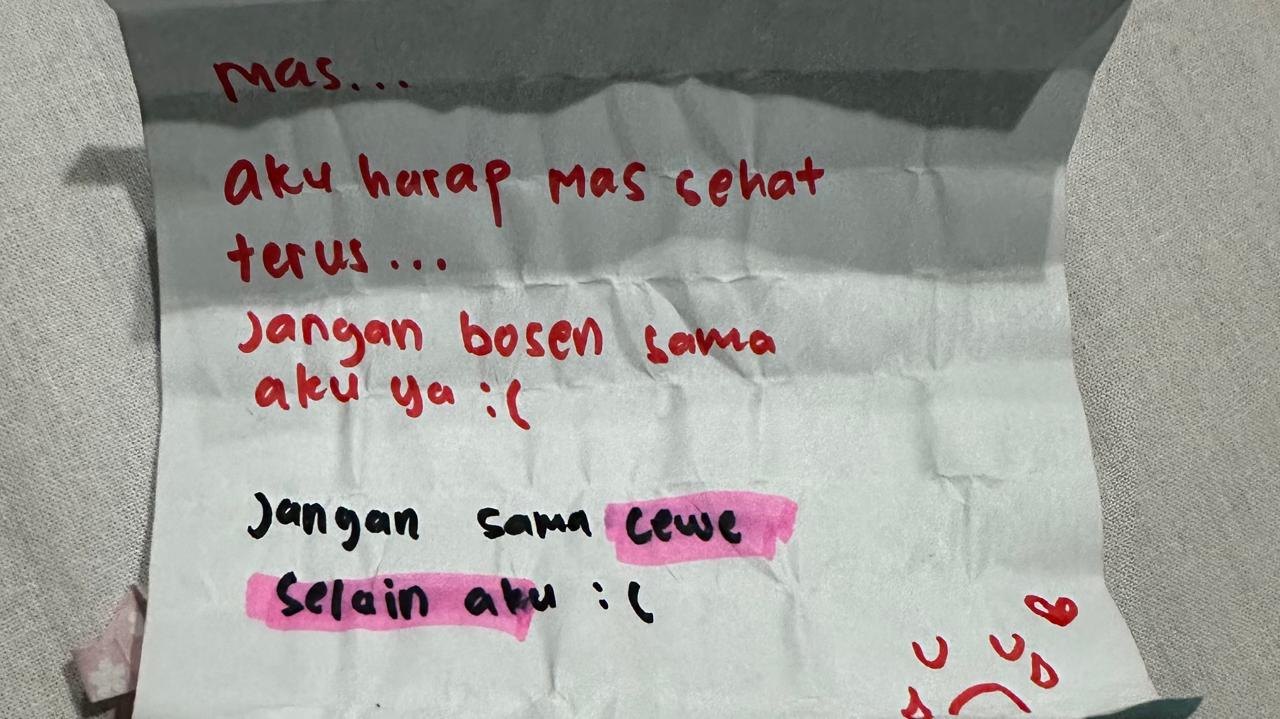 mas...
aku harap mas sehat
terus...
Jangan bosen sama
aku ya :(
Jangan sama cewe
selain aku :(